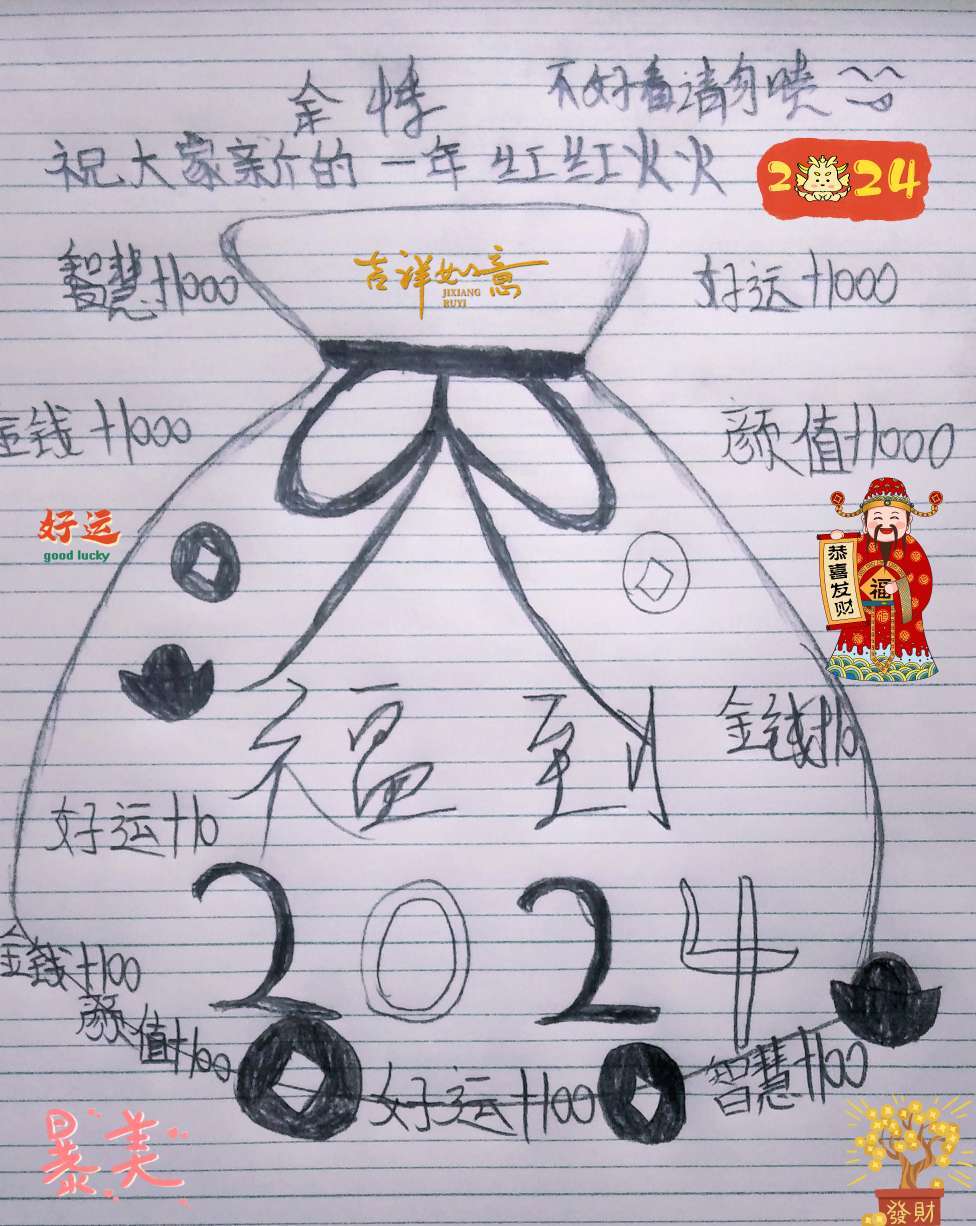 余悸 不好看请勿喷
祝大家新的一年红红火火
2024
智慧+1000
吉祥如意
JIXIANG
RUYI
好运+1000
金钱+1000
颜值+1000
好运
good lucky
恭喜发财
福
福到
金钱+10
好运+10
2024
金钱+100
颜值+100
好运+100
智慧+100
暴美
發財